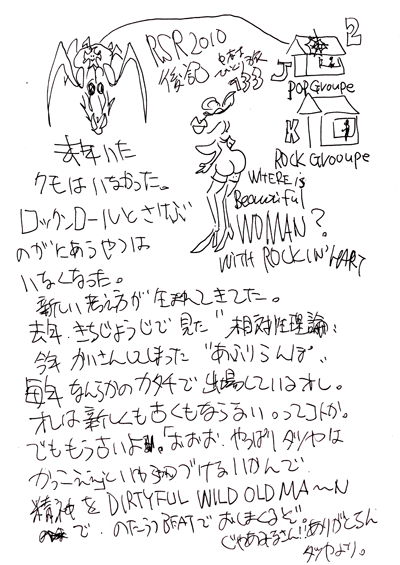 2
RSR2010
後記
J
POP GROUPE
K
ROCK GROOUPE
WHERE is
Beautiful
WOMAN?
WITH ROCKIN' HART
去年いた
クモはいなかった。
ロックンロールとさけぶ
のがにあうやつは
いなくなった。
新しい考え方が生まれてきてた。
去年、きちじょうじで見た"相対性理論"
今年かいさんしてしまった"あふりらんぽ"、
毎年なんらかのカタチで出場しているオレ。
オレは新しくも古くもならない。ってコトか。
でももう古いよ。「おおお、やっぱりタツヤは
かっこええ」といわせつづけないかんで
精神をDIRTYFUL WILD OLD MA〜N
で、のたうつBEATでおしまくるぞ。
じゃあみなさん!!ありがとさん
タツヤより。